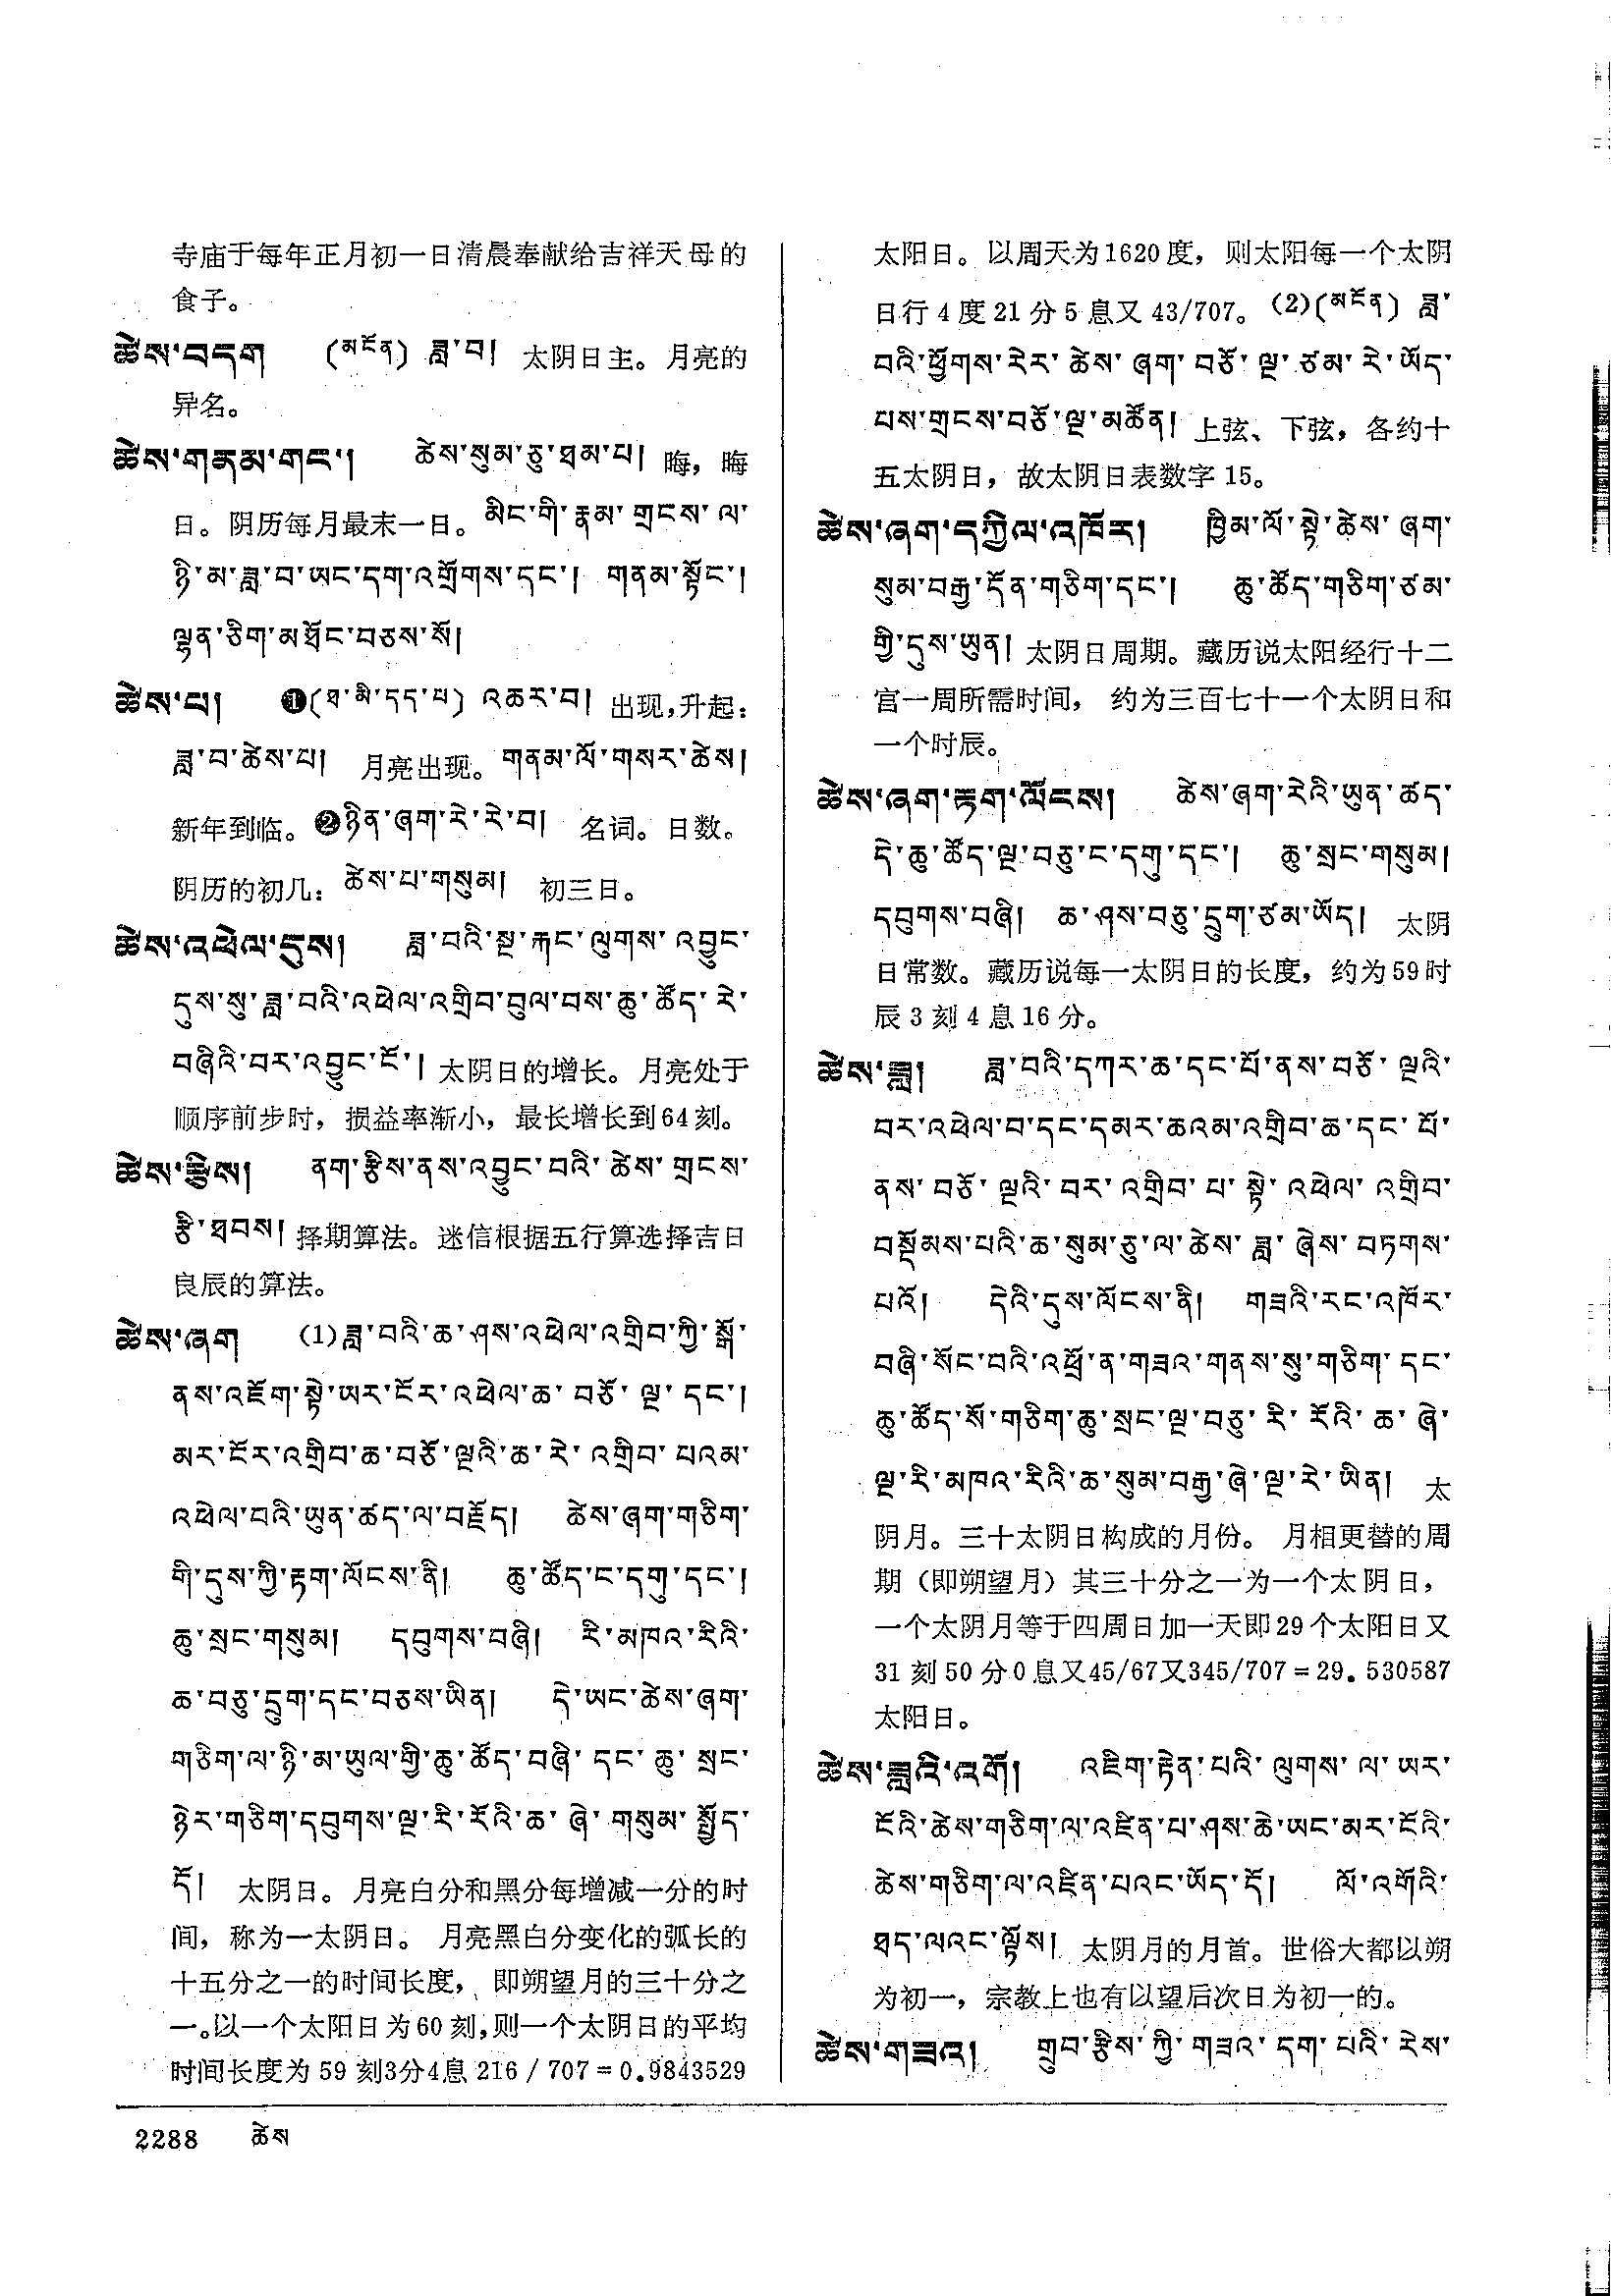 寺庙于每年正月初一日清晨奉献给吉祥天母的
食子。
ཚེས་བདག (མངོན) ཟླ་བ། 太阴日主。月亮的
异名。
ཚེས་གནམ་གང་། ཚེས་སུམ་ཅུ་ཐམ་པ། 晦，晦
日。阴历每月最末一日。མིང་གི་རྣམ་གྲངས་ལ་
ཉི་མ་ཟླ་བ་ཡང་དག་འགྲོགས་དང་། གནམ་སྟོང་།
ལྷན་ཅིག་མཐོང་བཅས་སོ།
ཚེས་པ། ❶(ཐ་མི་དད་པ) འཆར་བ། 出现，升起：
ཟླ་བ་ཚེས་པ། 月亮出现。གནམ་ལོ་གསར་ཚེས།
新年到临。❷ཉིན་ཞག་རེ་རེ་བ། 名词。日数。
阴历的初几：ཚེས་པ་གསུམ། 初三日。
ཚེས་འཕེལ་དུས། ཟླ་བའི་སྔ་རྐང་ལུགས་འབྱུང་
དུས་སུ་ཟླ་བའི་འཕེལ་འགྲིབ་བུལ་བས་ཆུ་ཚོད་རེ་
བཞིའི་བར་འབྱུང་ངོ་། 太阴日的增长。月亮处于
顺序前步时，损益率渐小，最长增长到64刻。
ཚེས་རྩིས། ནག་རྩིས་ནས་འབྱུང་བའི་ཚེས་གྲངས་
རྩི་ཐབས། 择期算法。迷信根据五行算选择吉日
良辰的算法。
ཚེས་ཞག (1)ཟླ་བའི་ཆ་ཤས་འཕེལ་འགྲིབ་ཀྱི་སྒོ་
ནས་འཇོག་སྟེ་ཡར་ངོར་འཕེལ་ཆ་བཅོ་ལྔ་དང་།
མར་ངོར་འགྲིབ་ཆ་བཅོ་ལྔའི་ཆ་རེ་འགྲིབ་པའམ་
འཕེལ་བའི་ཡུན་ཚད་ལ་བརྗོད། ཚེས་ཞག་གཅིག་
གི་དུས་ཀྱི་རྟག་ལོངས་ནི། ཆུ་ཚོད་ང་དགུ་དང་།
ཆུ་སྲང་གསུམ། དབུགས་བཞི། རི་མཁའ་རིའི་
ཆ་བཅུ་དྲུག་དང་བཅས་ཡིན། དེ་ཡང་ཚེས་ཞག་
གཅིག་ལ་ཉི་མ་ཡུལ་གྱི་ཆུ་ཚོད་བཞི་དང་ཆུ་སྲང་
ཉེར་གཅིག་དབུགས་ལྔ་རི་རོའི་ཆ་ཞེ་གསུམ་སྤྱོད་
དོ། 太阴日。月亮白分和黑分每增减一分的时
间，称为一太阴日。月亮黑白分变化的弧长的
十五分之一的时间长度，即朔望月的三十分之
一。以一个太阳日为60刻，则一个太阴日的平均
时间长度为59刻3分4息216/707＝0.9843529
太阳日。以周天为1620度，则太阳每一个太阴
日行4度21分5息又43/707。(2)(མངོན) ཟླ་
བའི་ཕྱོགས་རེར་ཚེས་ཞག་བཅོ་ལྔ་ཙམ་རེ་ཡོད་
པས་གྲངས་བཅོ་ལྔ་མཚོན། 上弦、下弦，各约十
五太阴日，故太阴日表数字15。
ཚེས་ཞག་དཀྱིལ་འཁོར། ཁྱིམ་ལོ་སྟེ་ཚེས་ཞག་
སུམ་བརྒྱ་དོན་གཅིག་དང་། ཆུ་ཚོད་གཅིག་ཙམ་
གྱི་དུས་ཡུན། 太阴日周期。藏历说太阳经行十二
宫一周所需时间，约为三百七十一个太阴日和
一个时辰。
ཚེས་ཞག་རྟག་ལོངས། ཚེས་ཞག་རེའི་ཡུན་ཚད་
དེ་ཆུ་ཚོད་ལྔ་བཅུ་ང་དགུ་དང་། ཆུ་སྲང་གསུམ།
དབུགས་བཞི། ཆ་ཤས་བཅུ་དྲུག་ཙམ་ཡོད། 太阴
日常数。藏历说每一太阴日的长度，约为59时
辰3刻4息16分。
ཚེས་ཟླ། ཟླ་བའི་དཀར་ཆ་དང་པོ་ནས་བཅོ་ལྔའི་
བར་འཕེལ་བ་དང་དམར་ཆའམ་འགྲིབ་ཆ་དང་པོ་
ནས་བཅོ་ལྔའི་བར་འགྲིབ་པ་སྟེ་འཕེལ་འགྲིབ་
བསྡོམས་པའི་ཆ་སུམ་ཅུ་ལ་ཚེས་ཟླ་ཞེས་བཏགས་
པའོ། དེའི་དུས་ལོངས་ནི། གཟའི་རང་འཁོར་
བཞི་སོང་བའི་འཕྲོ་ན་གཟའ་གནས་སུ་གཅིག་དང་
ཆུ་ཚོད་སོ་གཅིག་ཆུ་སྲང་ལྔ་བཅུ་རི་རོའི་ཆ་ཞེ་
ལྔ་རི་མཁའ་རིའི་ཆ་སུམ་བརྒྱ་ཞེ་ལྔ་རེ་ཡིན། 太
阴月。三十太阴日构成的月份。月相更替的周
期（即朔望月）其三十分之一为一个太阴日，
一个太阴月等于四周日加一天即29个太阳日又
31刻50分0息又45/67又345/707＝29.530587
太阳日。
ཚེས་ཟླའི་འགོ། འཇིག་རྟེན་པའི་ལུགས་ལ་ཡར་
ངོའི་ཚེས་གཅིག་ལ་འཛིན་པ་ཤས་ཆེ་ཡང་མར་ངོའི་
ཚེས་གཅིག་ལ་འཛིན་པའང་ཡོད་དོ། ལོ་འགོའི་
ཐད་ལའང་ལྟོས། 太阴月的月首。世俗大都以朔
为初一，宗教上也有以望后次日为初一的。
ཚེས་གཟའ། གྲུབ་རྩིས་ཀྱི་གཟའ་དག་པའི་རེས་
2288 ཚེས